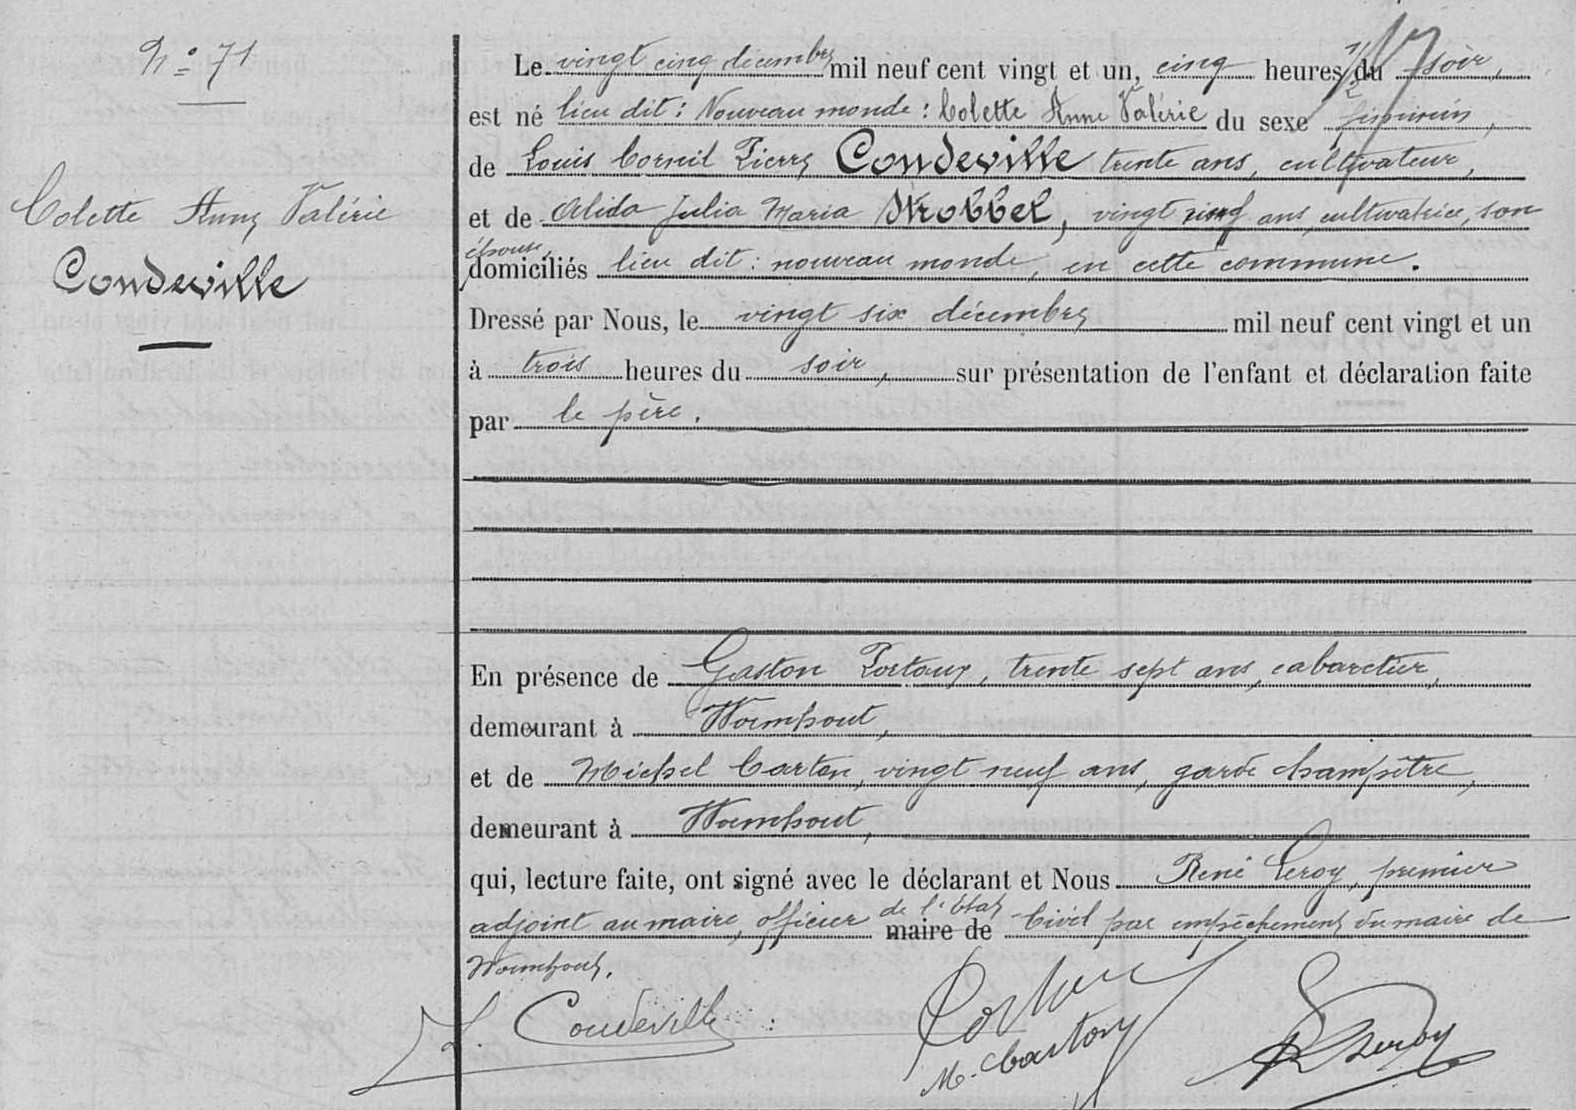 N° 71
Colette Anne Valérie
Coudeville
Le vingt cinq décembre mil neuf cent vingt et un, cinq heures 1/2 du soir,
est né lieu dit : Nouveau monde : Colette Anne Valérie du sexe féminin,
de Louis Corneil Pierre Coudeville trente ans, cultivateur,
et de Alida Julia Maria Strobbel, vingt neuf ans, cultivatrice, son
épouse,
domiciliés lieu dit : nouveau monde, en cette commune.
Dressé par Nous, le vingt six décembre mil neuf cent vingt et un
à trois heures du soir, sur présentation de l'enfant et déclaration faite
par le père.
En présence de Gaston, trente sept ans, cabaretier,
demeurant à Wormhout,
et de Michel Carton, vingt neuf ans, garde champêtre,
demeurant à Wormhout,
qui, lecture faite, ont signé avec le déclarant et Nous René Leroy, premier
adjoint au maire, officier de l'Etat maire de Civil par empêchement du maire de
Wormhout.
L. Coudeville
M. Carton
R Leroy